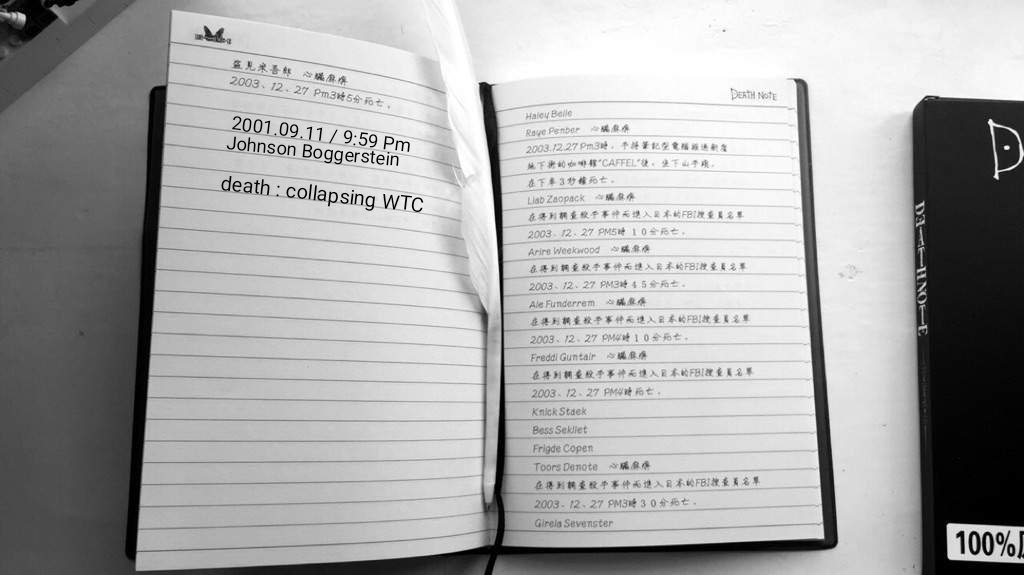 盜見米吾郎 心臟麻痺
2003、12、27 Pm3時5分死亡。
2001.09.11 / 9:59 Pm
Johnson Boggerstein
death : collapsing WTC
DEATH NOTE
Haley Belle
Raye Penber 心臟麻痺
2003.12.27 Pm3時，手持筆記型電腦經過新宿
地下街的咖啡館"CAFFEL"後，坐下山手線，
在下車3秒鐘死亡。
Liab Zaopack 心臟麻痺
在得到調查殺手事件而進入日本的FBI搜查員名單
2003、12、27 PM5時10分死亡。
Arire Weekwood 心臟麻痺
在得到調查殺手事件而進入日本的FBI搜查員名單
2003、12、27 PM3時45分死亡。
Ale Funderrem 心臟麻痺
在得到調查殺手事件而進入日本的FBI搜查員名單
2003、12、27 PM4時10分死亡。
Freddi Guntair 心臟麻痺
在得到調查殺手事件而進入日本的FBI搜查員名單
2003、12、27 PM4時死亡。
Knick Staek
Bess Sekllet
Frigde Copen
Toors Denote 心臟麻痺
在得到調查殺手事件而進入日本的FBI搜查員名單
2003、12、27 PM3時30分死亡。
Girela Sevenster
D
DEATH NOTE
100%